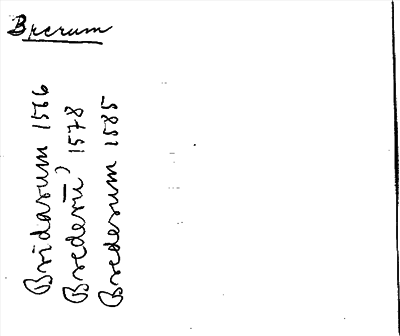 Brerum
Bridarum 1566
Brederū 1578
Brederum 1585